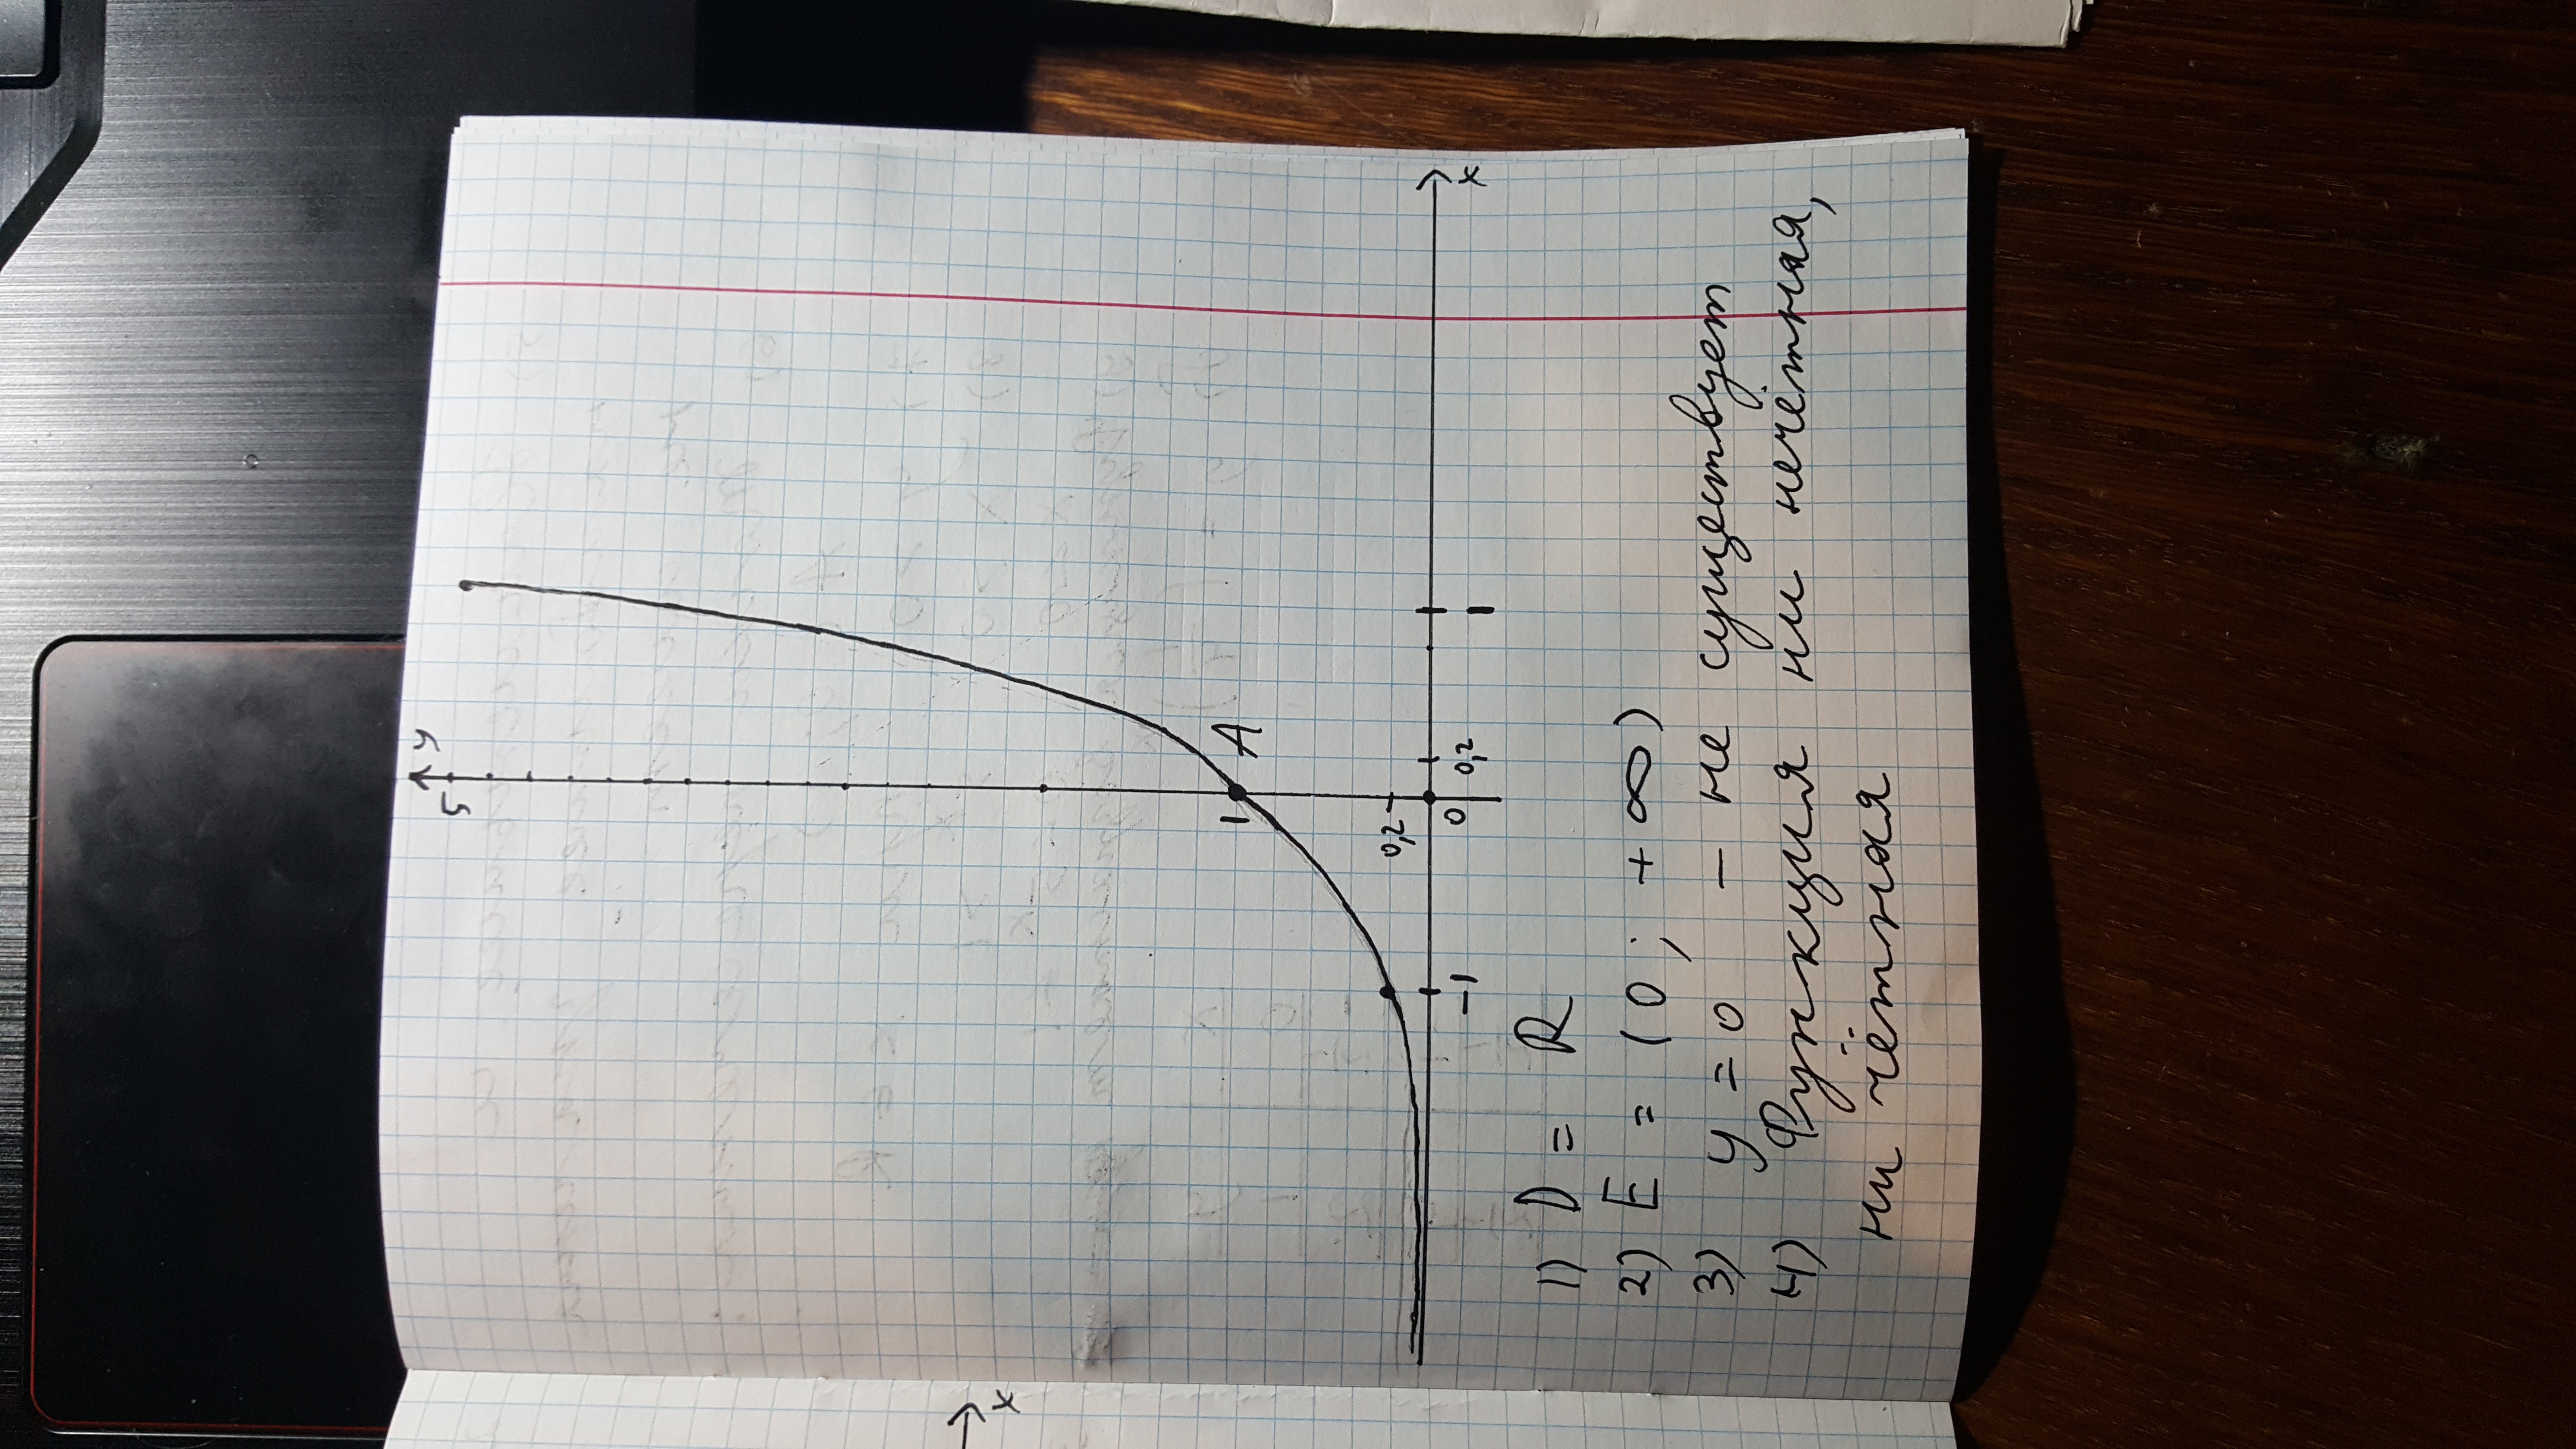 y
5
A
1
0,2
-1
0
0,2
1
x
1) D = R
2) E = (0; +∞)
3) y = 0 - не существует
4) Функция ни нечётная,
ни чётная
x